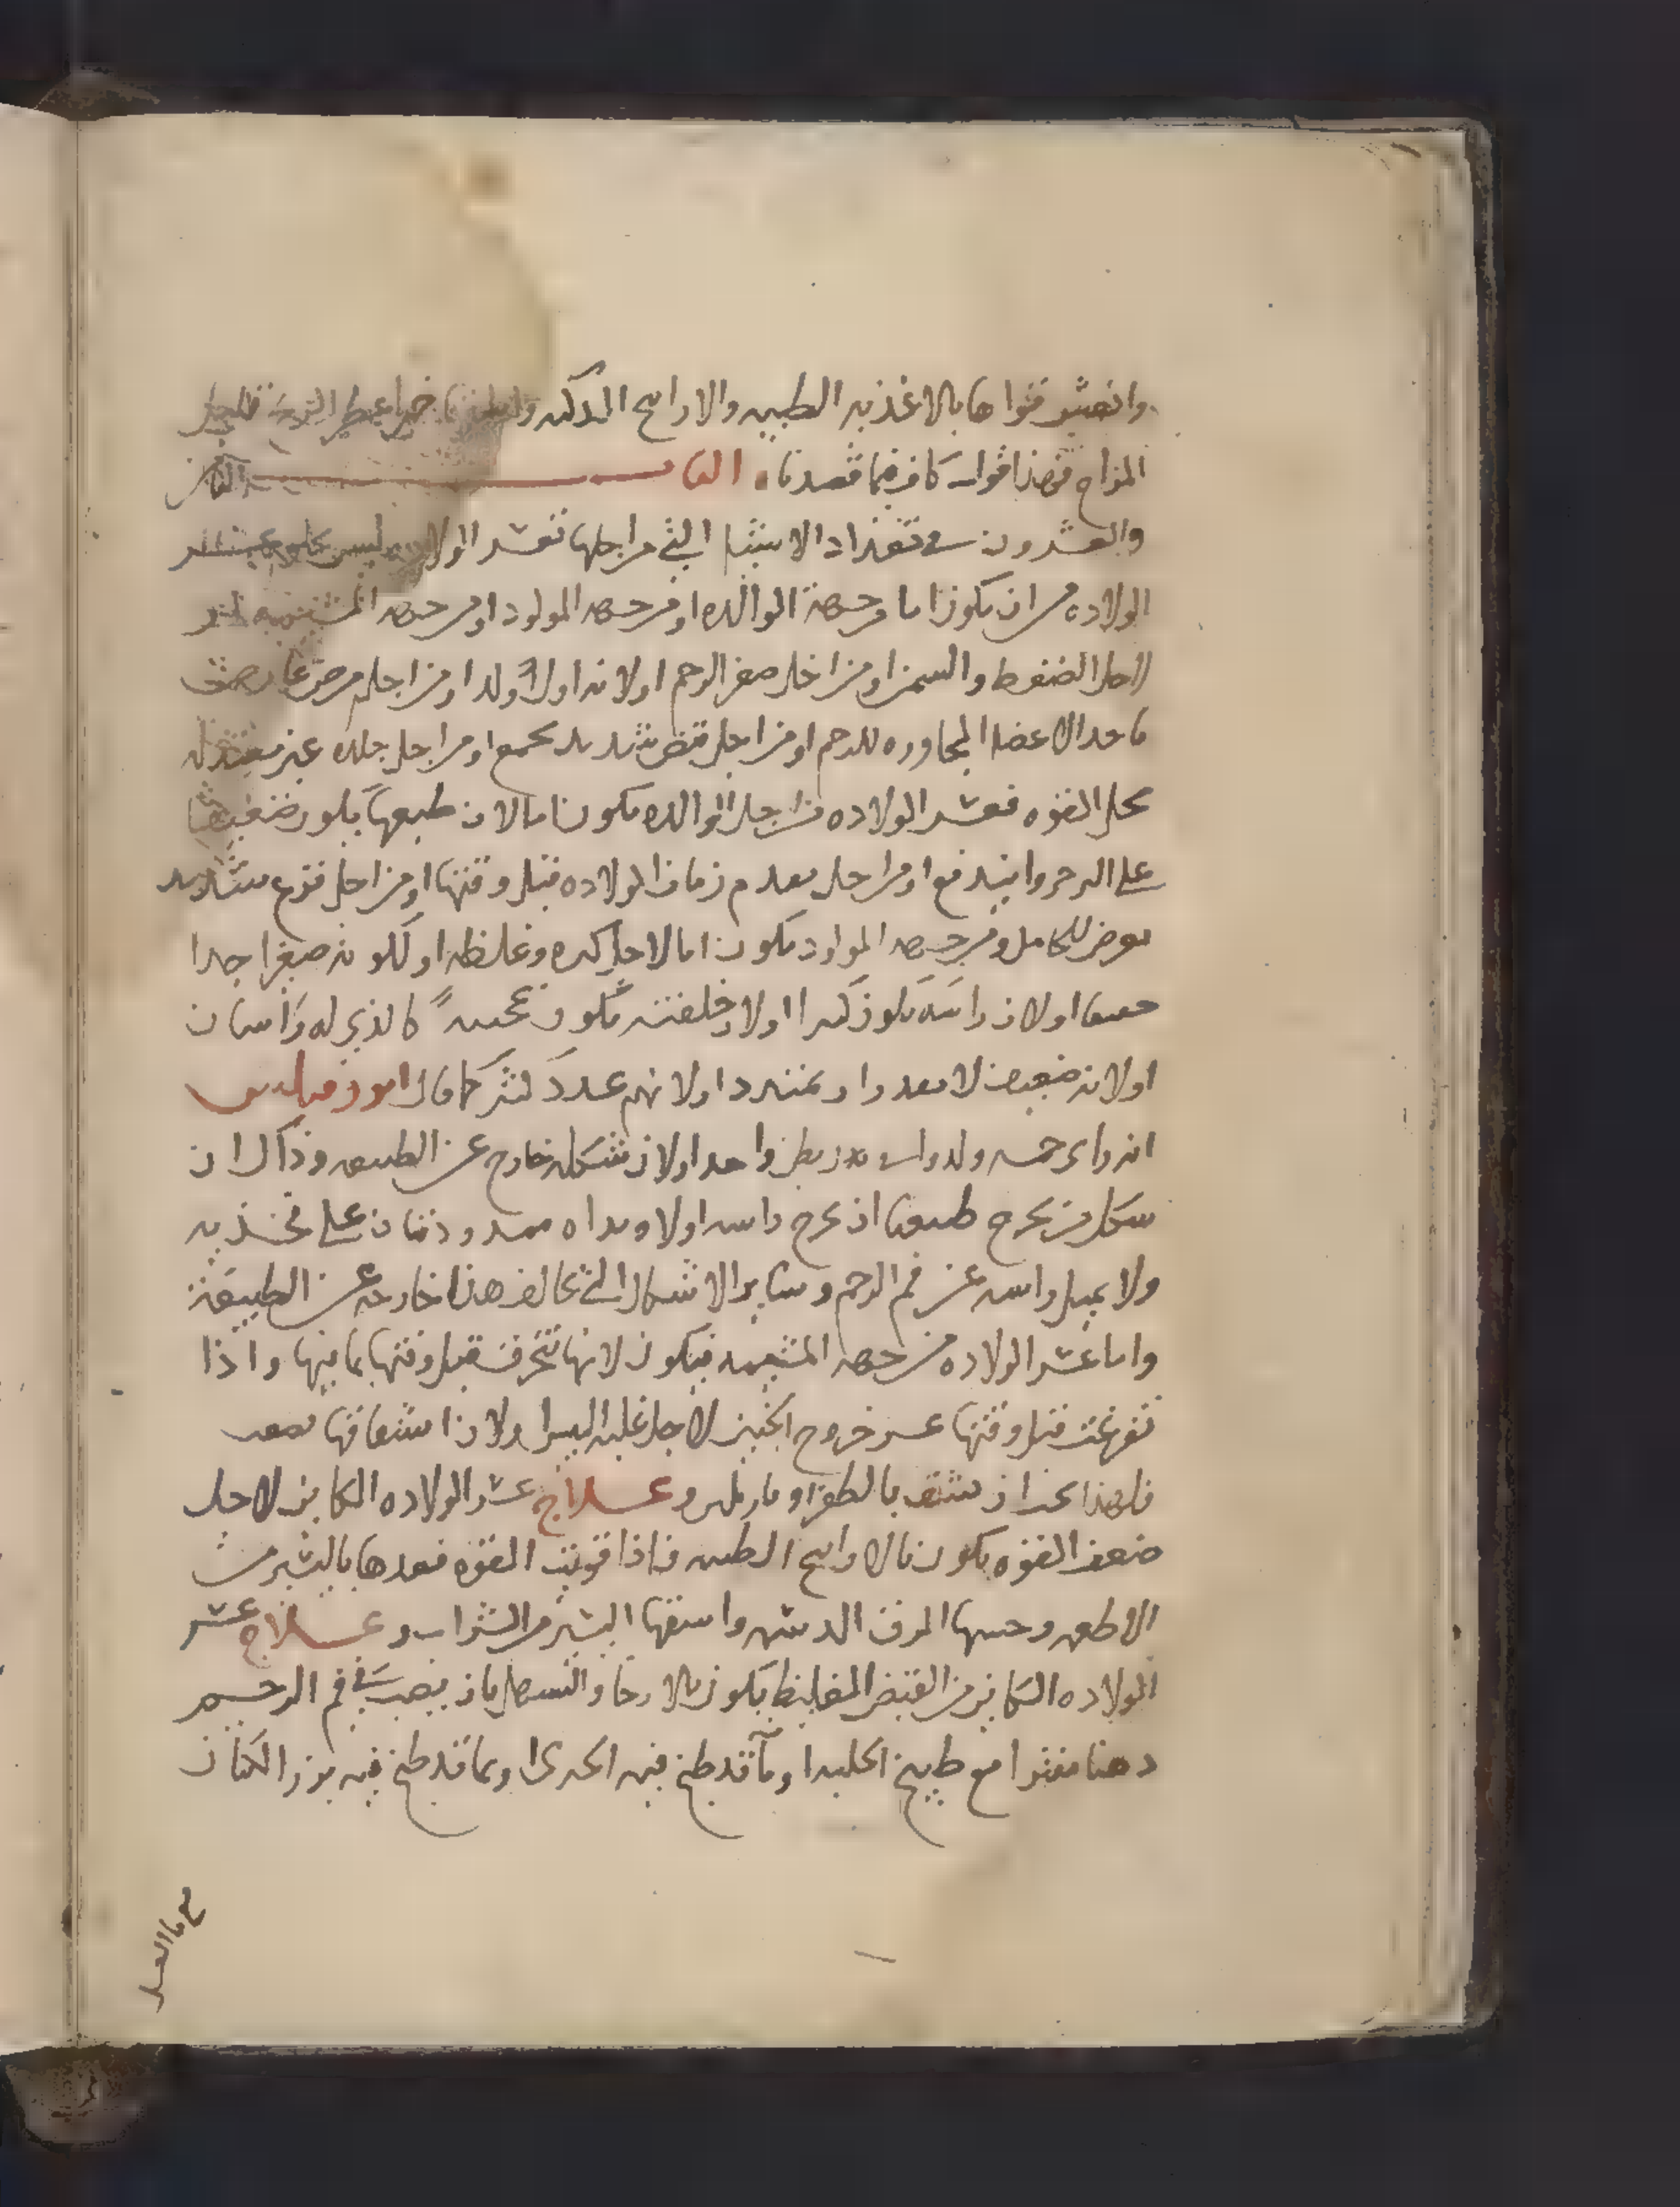 وانعش قواها بالاغذيه الطيبه والاراىح الذكىه
المزاج فهذا قول كاف فيما قصدنا ۰ الباب الثامن
والعشرون في تعداد الاشيا التي من اجلها تعسر الولاده ليس يخلو عسر
الولاده من ان يكون اما من جهة الوالده او من جهه المولود او من جهه المشيمه
لاجل الضغوط والسمن او من اجل صغر الرحم او لانه اول ولد او من اجل مرض عارض في
احد الاعضا المجاوره للرحم او من اجل قبض شديد يجمع او من اجل جلده غير معتدله
محل القوه فعسر الولاده من اجل الوالده يكون اما لان طبعها يكون ضعيفا
على الزحر والىدفع او من اجل تقدم زمان الولاده قبل وقتها او من اجل فزع شديد
يعرض للحامل ومن جهه المولود يكون اما لاجل كبره وغلظه او لكونه صغيرا جدا
خفيفا او لان راسه يكون كبيرا او لان خلقته تكون عجيبةً كالذي له راسان
او لانه ضعيف لا يقدر او يتمدد او لانهم عدد كثير كما قال ابوذقيليس
انه راى خمسه ولدوا من بطن واحد او لان شكله خارج عن الطبيعه وذاك ان
شكل من يخرج طبيعيا ان يخرج راسه اولا ويداه ممدودتان على فخذيه
ولا يميل راسه عن فم الرحم وساير الاشكال التي تخالف هذا خارجه عن الطبيعة
واما عسر الولاده من جهه المشيمه فيكون لانها تنخرق قبل وقتها بما فيها واذا
تفرغت قبل وقتها عسر خروج الجنين لاجل غلبه اليبس او لان انشقاقها يصعب
فلهذا يجب ان تشق بالظفر او بارىله وعلاج عسر الولاده الكاين لاجل
ضعف القوه يكون بالاراىح الطيبه فاذا قويت القوه فعدها باليسير من
الاطعمه وحسها المرق الدسم واسقها اليسير من الشراب وعلاج عسر
الولاده الكاين من القبض المغليظ يكون بالارخا والتسهيل بان يصب في فم الرحم
دهنا مفترا مع طبيخ الحلبه او ما قد طبخ فيه الخبازى او بما قد طبخ فيه بزر الكتان